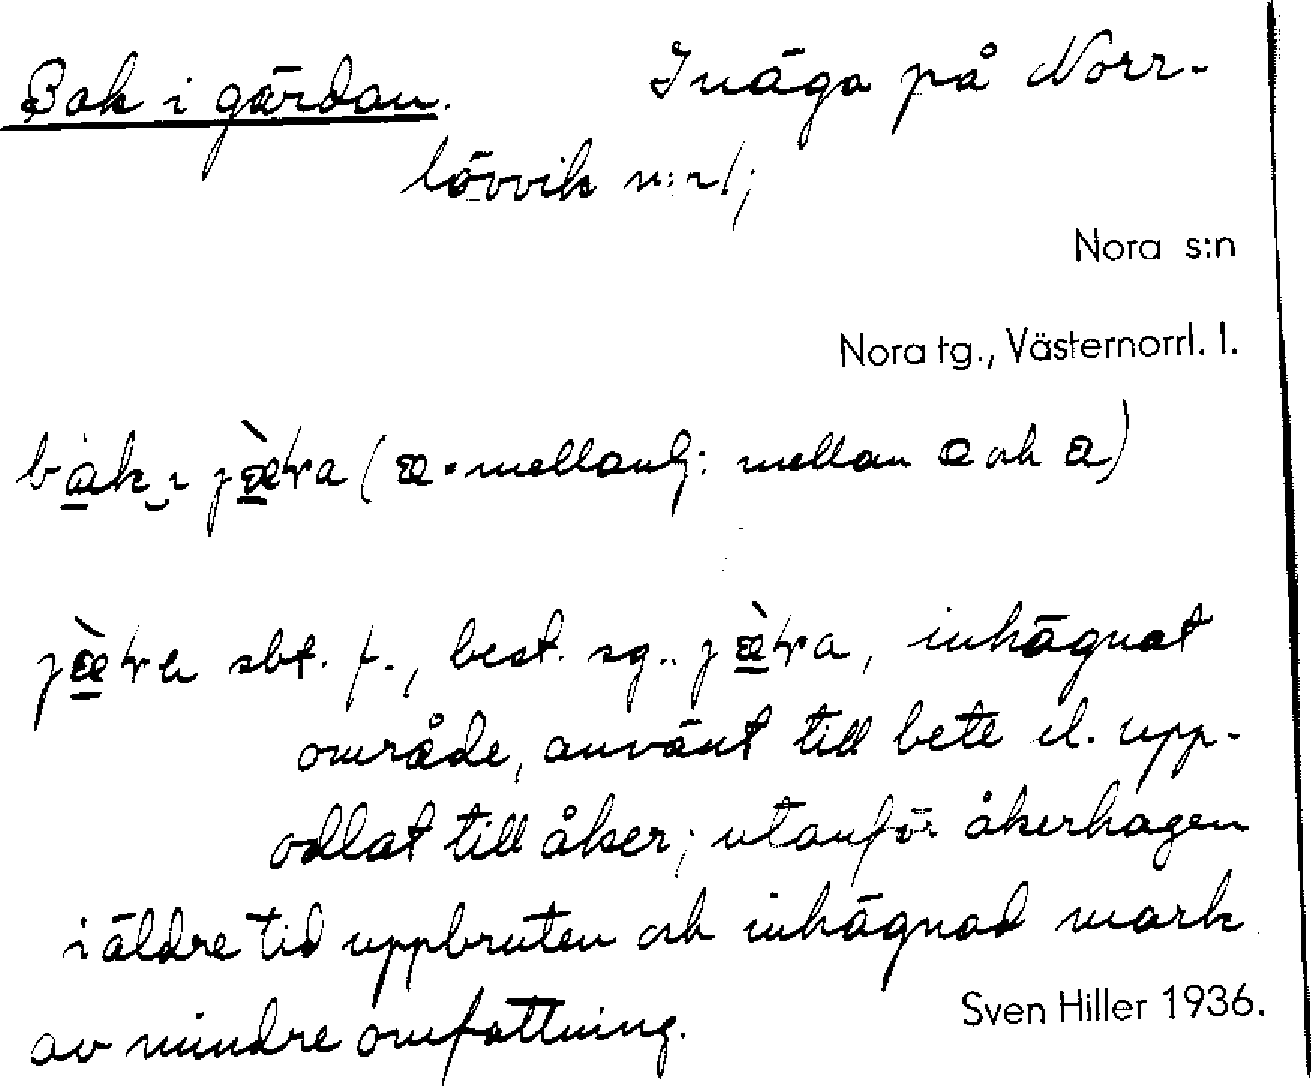 Bak i gärdan. Inäga på Norr-
lövvik n:r 1;
Nora s:n
Nora tg., Västernorrl. l.
(æ = mellanlj: mellan a och a)
sbt. f., best. sg. inhägnat
område, använt till bete el. upp-
odlat till åker; utanför åkerhagen
i äldre tid uppbruten och inhägnad mark
av mindre omfattning.
Sven Hiller 1936.